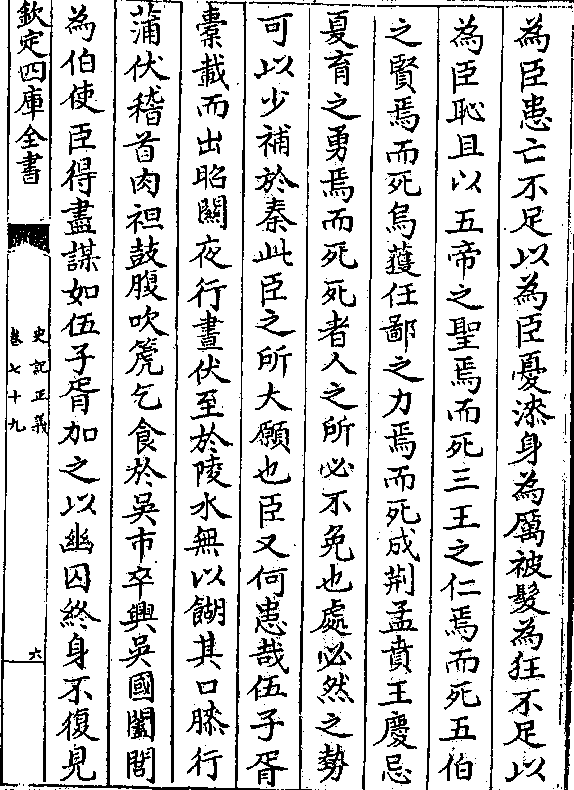 為臣患亡不足以為臣憂漆身為厲被髮為狂不足以
為臣恥且以五帝之聖焉而死三王之仁焉而死五伯
之賢焉而死烏獲任鄙之力焉而死成荆孟賁王慶忌
夏育之勇焉而死死者人之所必不免也處必然之勢
可以少補於秦此臣之所大願也臣又何患哉伍子胥
橐載而出昭關夜行晝伏至於陵水無以餬其口膝行
蒲伏稽首肉袒鼓腹吹篪乞食於吳市卒興吳國闔閭
為伯使臣得盡謀如伍子胥加之以幽囚終身不復見
欽定四庫全書
史記正義
卷七十九
六